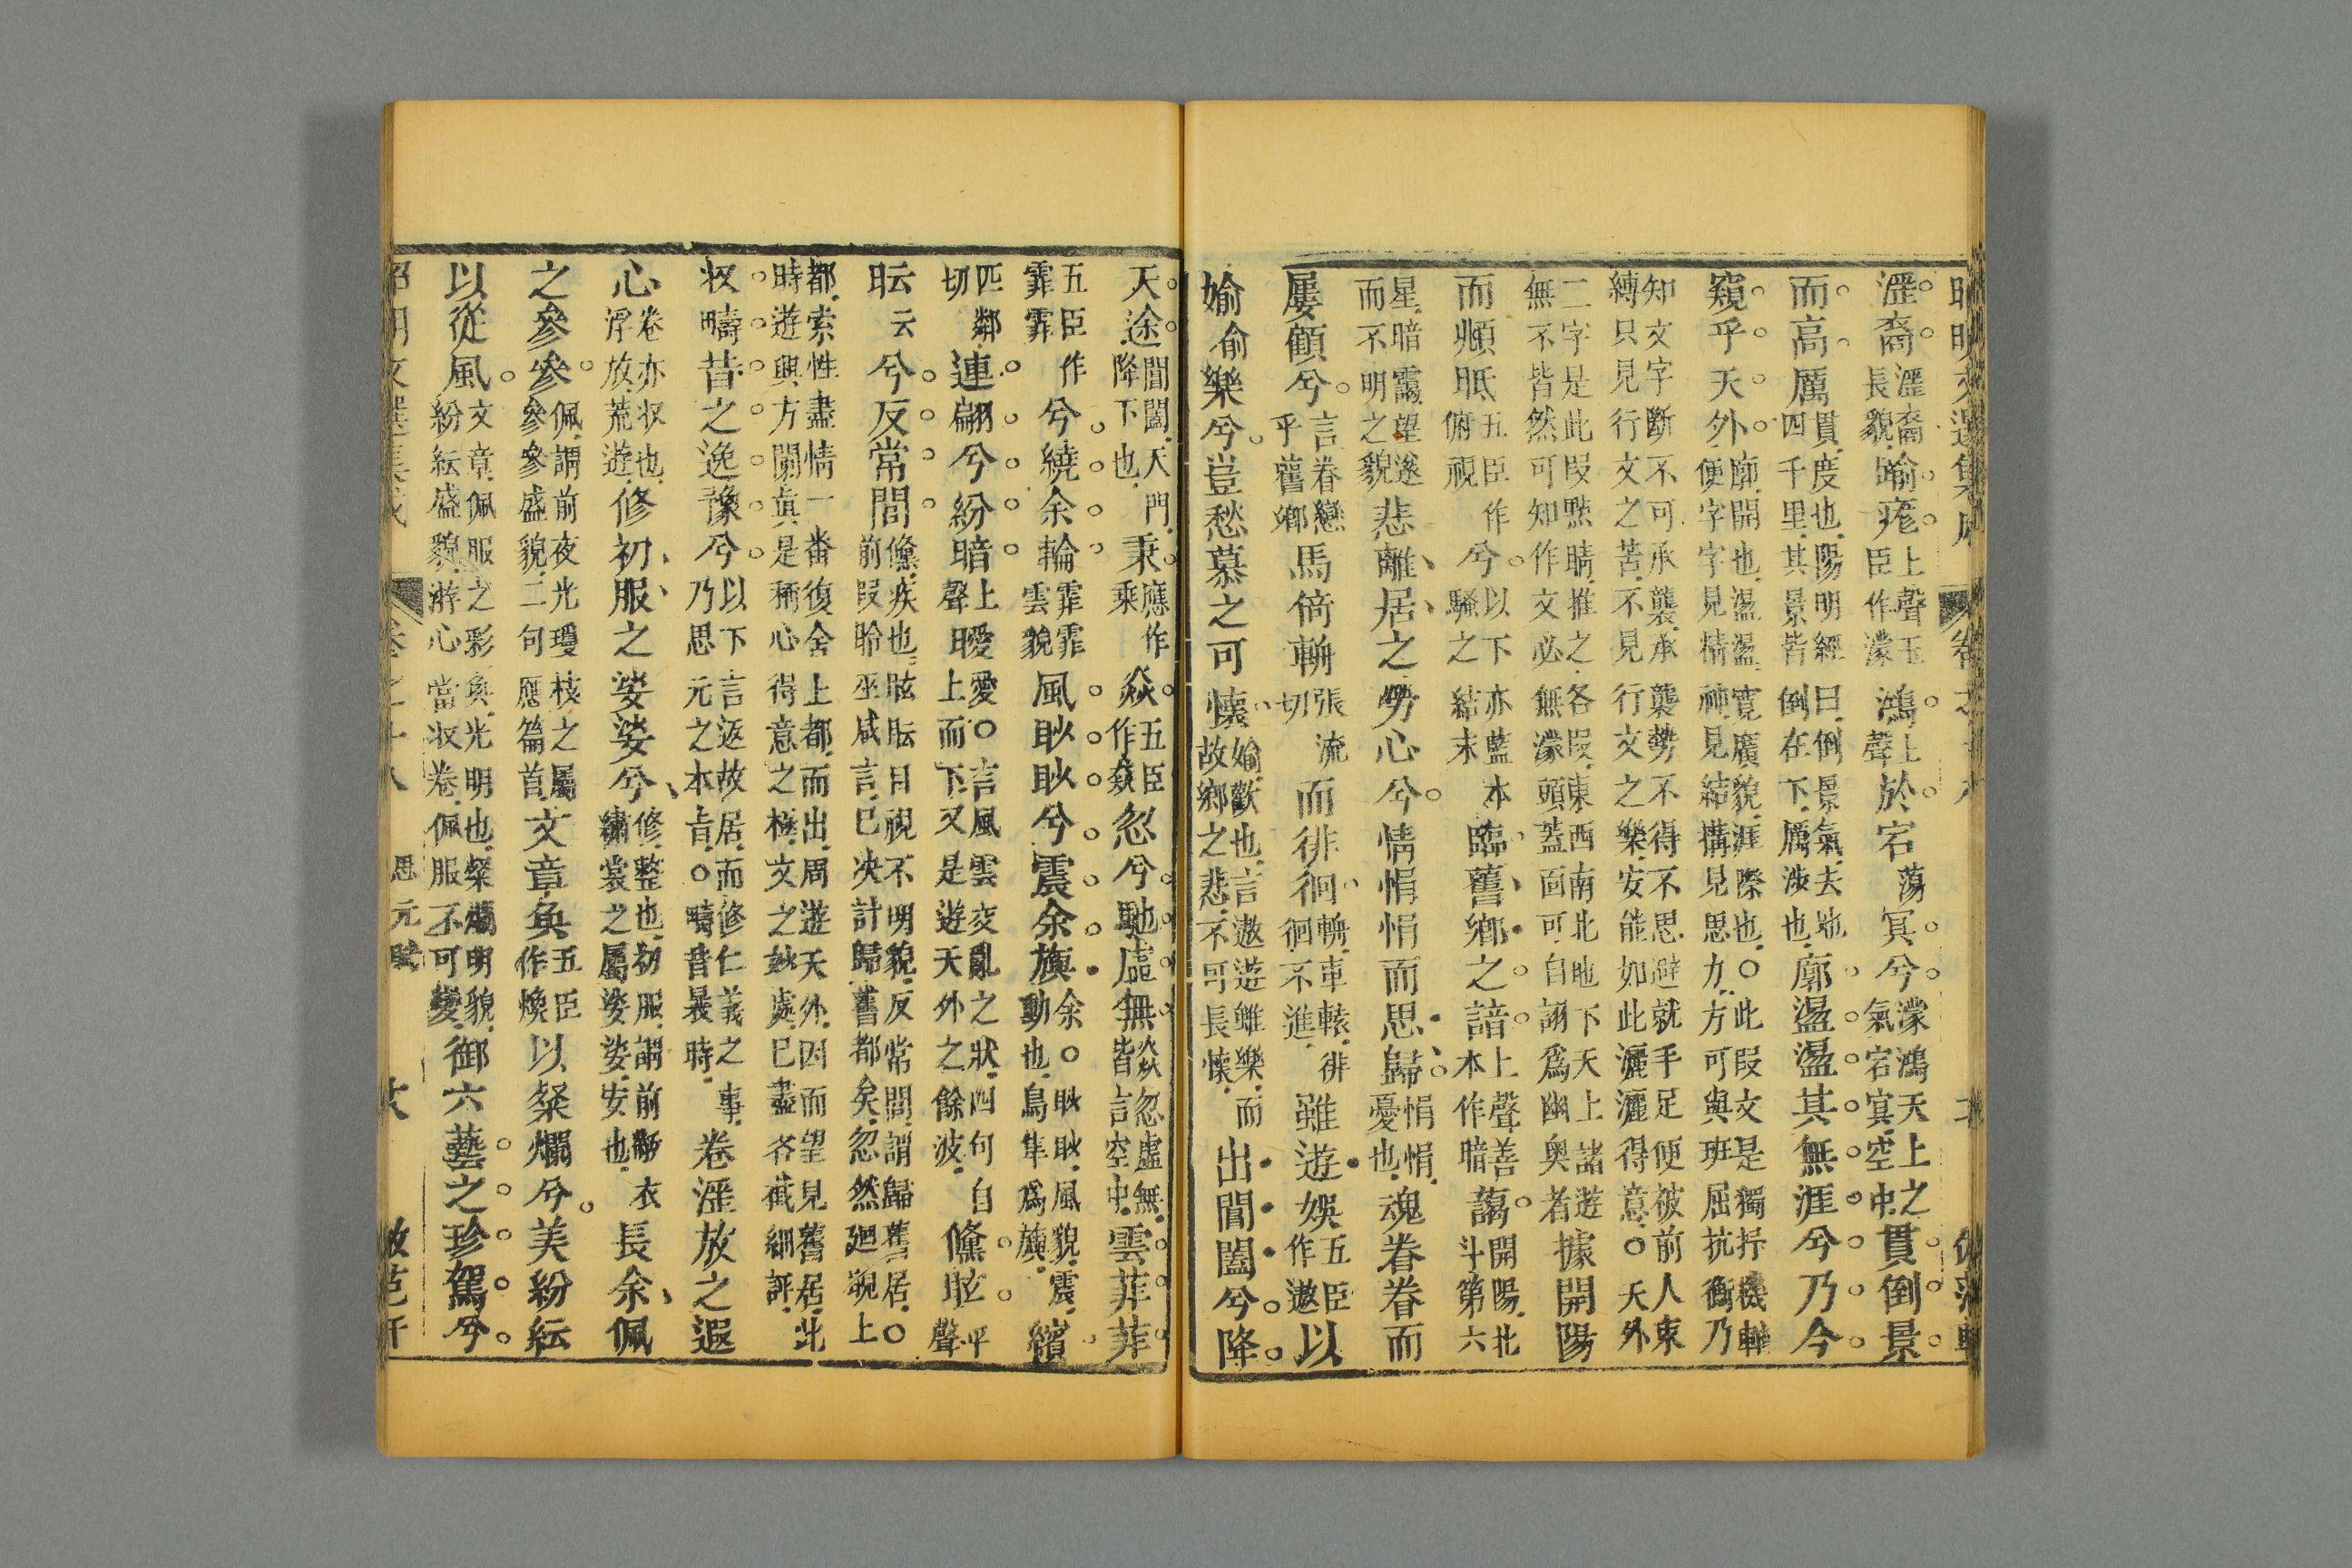 涯裔涯裔長貌踰痝上聲玉臣作濛鴻上聲於宕蕩冥兮濛鴻天上之氣宕冥空中貫倒景
而高厲貫度也陽明經四千里其景皆曰倒景氣去地倒在下厲涉也廓盪盪其無涯兮乃今
窺乎天外廓開也盪盪寬廣貌涯際也○此叚文是獨抒機軸便字字見精神見結搆見思力方可與班屈抗衡乃
知文字斷不可承襲承襲勢不得不思避就手足便被前人束縛只見行文之苦不見行文之樂安能如此灑灑得意○天外
二字是此叚點睛推之各叚東西南北地下天上諸遊無不皆然可知作文必無濛頭蓋面可自詡爲幽奥者據開陽
而頫眂五臣作俯視兮以下亦藍本騷之結末臨舊鄉之諳上聲善本作暗藹開陽北斗第六
星暗靄望遂而不明之貌悲離居之勞心兮情悁悁而思歸悁悁憂也魂眷眷而
屢顧兮言眷戀乎舊鄉馬倚輈張流切而徘徊輈車轅徘徊不進雖遊娛五臣作遨以
媮偷樂兮豈愁慕之可懷媮歡也言遨遊雖樂而故鄉之悲不可長懷出閶闔兮降
天途閶闔天門降下也秉應作乘焱五臣作猋忽兮馳虛無焱忽虛無皆言空中雲菲菲
五臣作霏霏兮繞余輪霏霏雲貌風眇眇兮震余旟余○眇眇風貌震動也鳥隼爲旟繽
匹鄰切連翩兮紛暗上聲曖愛○言風雲交亂之狀四句自上而下又是遊天外之餘波儵眩平聲
眃云兮反常閭儵疾也眩眃目視不明貌反常閭謂歸舊居○前叚聆巫咸言已決計歸舊都矣忽然廻覬上
都索性盡情一番復舍上都而出周遊天外因而望見舊居此時遊興方闌眞是稱心得意之極文之妙處已盡各截細評
收疇昔之逸豫兮以下言返故居而修仁義之事乃思元之本旨○疇昔曩時卷淫放之遐
心卷亦收也浮放荒遊修初服之娑娑兮修整也初服謂前黼衣繡裳之屬娑娑安也長余佩
之參參佩謂前夜光瓊枝之屬參參盛貌二句應篇首文章奐五臣作煥以粲爛兮美紛紜
以從風文章佩服之彩奐光明也粲爛明貌紛紜盛貌游心當收卷佩服不可變御六藝之珍駕兮
思元賦